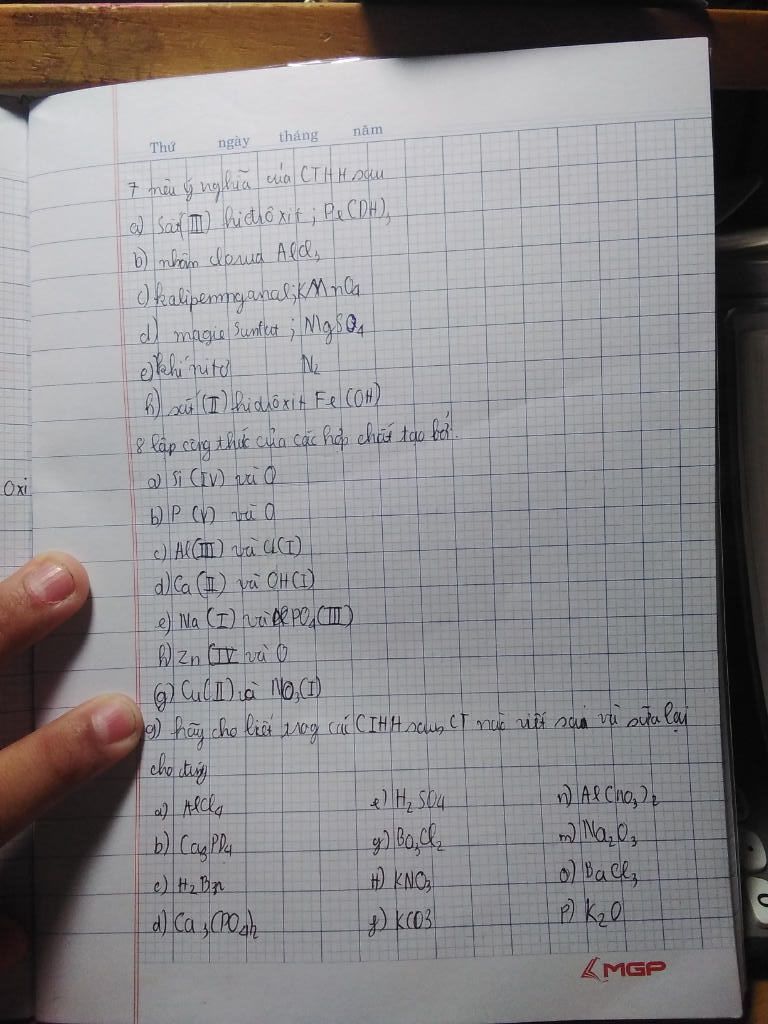 Thứ ngày tháng năm
7 nêu ý nghĩa của CTHH sau
a) sắt (III) hiđrôxit ; Fe(OH)3
b) nhôm clorua AlCl3
c) kalipemnganat; KMnO4
d) magie sunfat ; MgSO4
e) khí nitơ N2
h) sắt (II) hiđrôxit Fe(OH)
8 lập công thức của các hợp chất tạo bởi.
a) Si (IV) và O
b) P (V) và O
c) Al(III) và Cl(I)
d) Ca (II) và OH(I)
e) Na (I) và PO4(III)
h) Zn (IV và O
(g) Cu(II) và NO3(I)
9) hãy cho biết trog các CTHH sau, CT nào viết sai và sửa lại
cho đúng
a) AlCl4
e) H2SO4
n) Al(no3)2
b) Ca3PO4
g) Ba3Cl2
m) Na2O3
c)
H) KNO3
o) BaCl3
d) Ca3(PO4)2
f) KCO3
p) K2O
MGP
Oxi